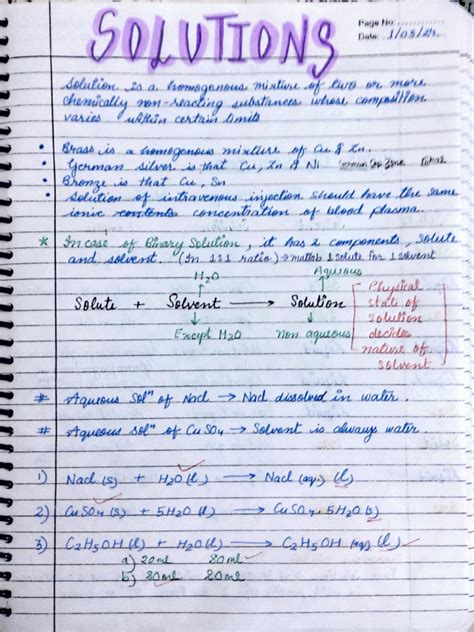 Page No.
Date: 1/03/24
SOLUTIONS
Solution is a homogenous mixture of two or more
chemically non-reacting substances whose composition
varies within certain limits
• Brass is a homogenous mixture of Cu & Zn.
• German silver is that Cu, Zn & Ni
• Bronze is that Cu, Sn
• Solution of intravenous injection should have the same
ionic contents concentration of blood plasma.
* In case of Binary Solution, it has 2 components, solute
and solvent. (In 1:1 ratio) → matlab 1 solute for 1 solvent
H₂O Aqueous
Solute + Solvent → Solution
Except H₂O non aqueous
Physical
state of
solution
decides
nature of
solvent
# Aqueous Solⁿ of Nacl → Nacl dissolved in water.
# Aqueous Solⁿ of CuSO₄ → Solvent is always water.
1) Nacl (s) + H₂O (l) → Nacl (aq.) (l)
2) CuSO₄ (s) + 5H₂O (l) → CuSO₄.5H₂O (s)
3) C₂H₅OH (l) + H₂O (l) → C₂H₅OH (aq) (l)
a) 20ml 80ml
b) 80ml 20ml